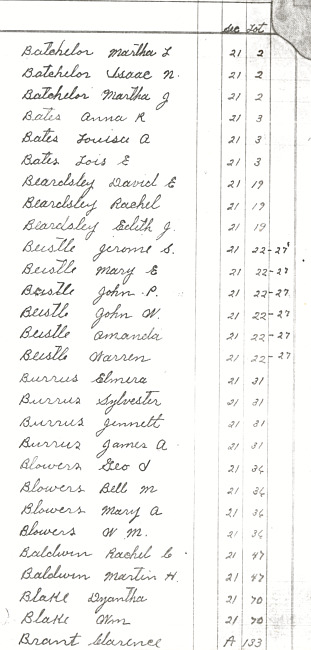 Sec Lot
Batchelor Martha L 21 2
Batchelor Isaac N. 21 2
Batchelor Martha J 21 2
Bates Anna R 21 3
Bates Louisee A 21 3
Bates Lois E 21 3
Beardsley David E 21 19
Beardsley Rachel 21 19
Beardsley Edith J. 21 19
Beistle Jerome S. 21 22-27
Beistle Mary E 21 22-27
Beistle John P. 21 22-27
Beistle John W. 21 22-27
Beistle Amanda 21 22-27
Beistle Warren 21 22-27
Burrus Elmira 21 31
Burrus Sylvester 21 31
Burrus Jennett 21 31
Burrus James A 21 31
Blowers Geo 21 36
Blowers Bell M 21 36
Blowers Mary A 21 36
Blowers W M. 21 36
Baldwin Rachel C. 21 47
Baldwin Martin H. 21 47
Blake Dyantha 21 70
Blake Wm 21 70
Brant Clarence A 133